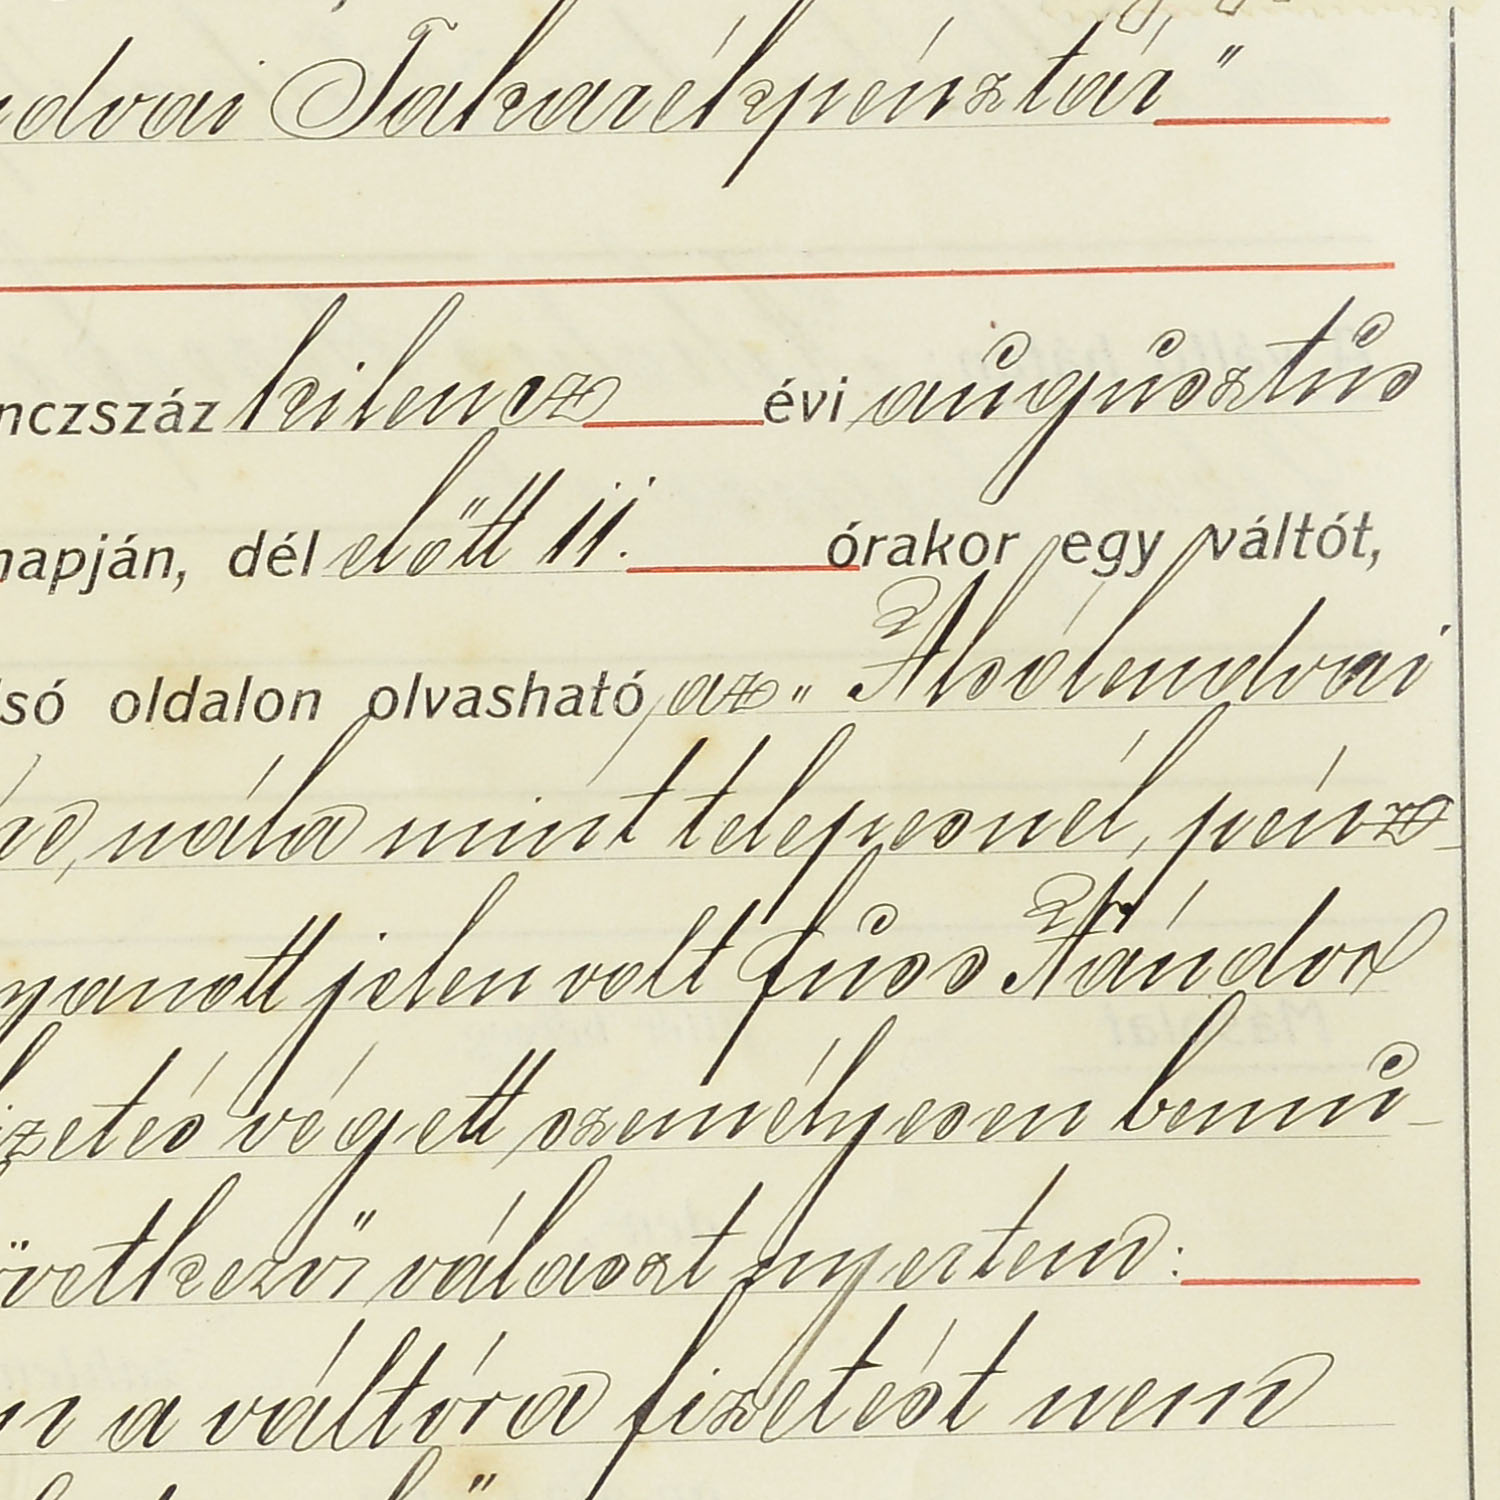 ndvai Takarékpénztár"
nczszáz kilencz évi augusztus
napján, dél előtt 11. órakor egy váltót,
lsó oldalon olvasható az „Alsólendvai
nála mint telepesnél, pénz
yanott jelen volt Fuss Nándor
izetés végett személyesen bemu-
övetkező választ nyertem:
n a váltóra fizetést nem